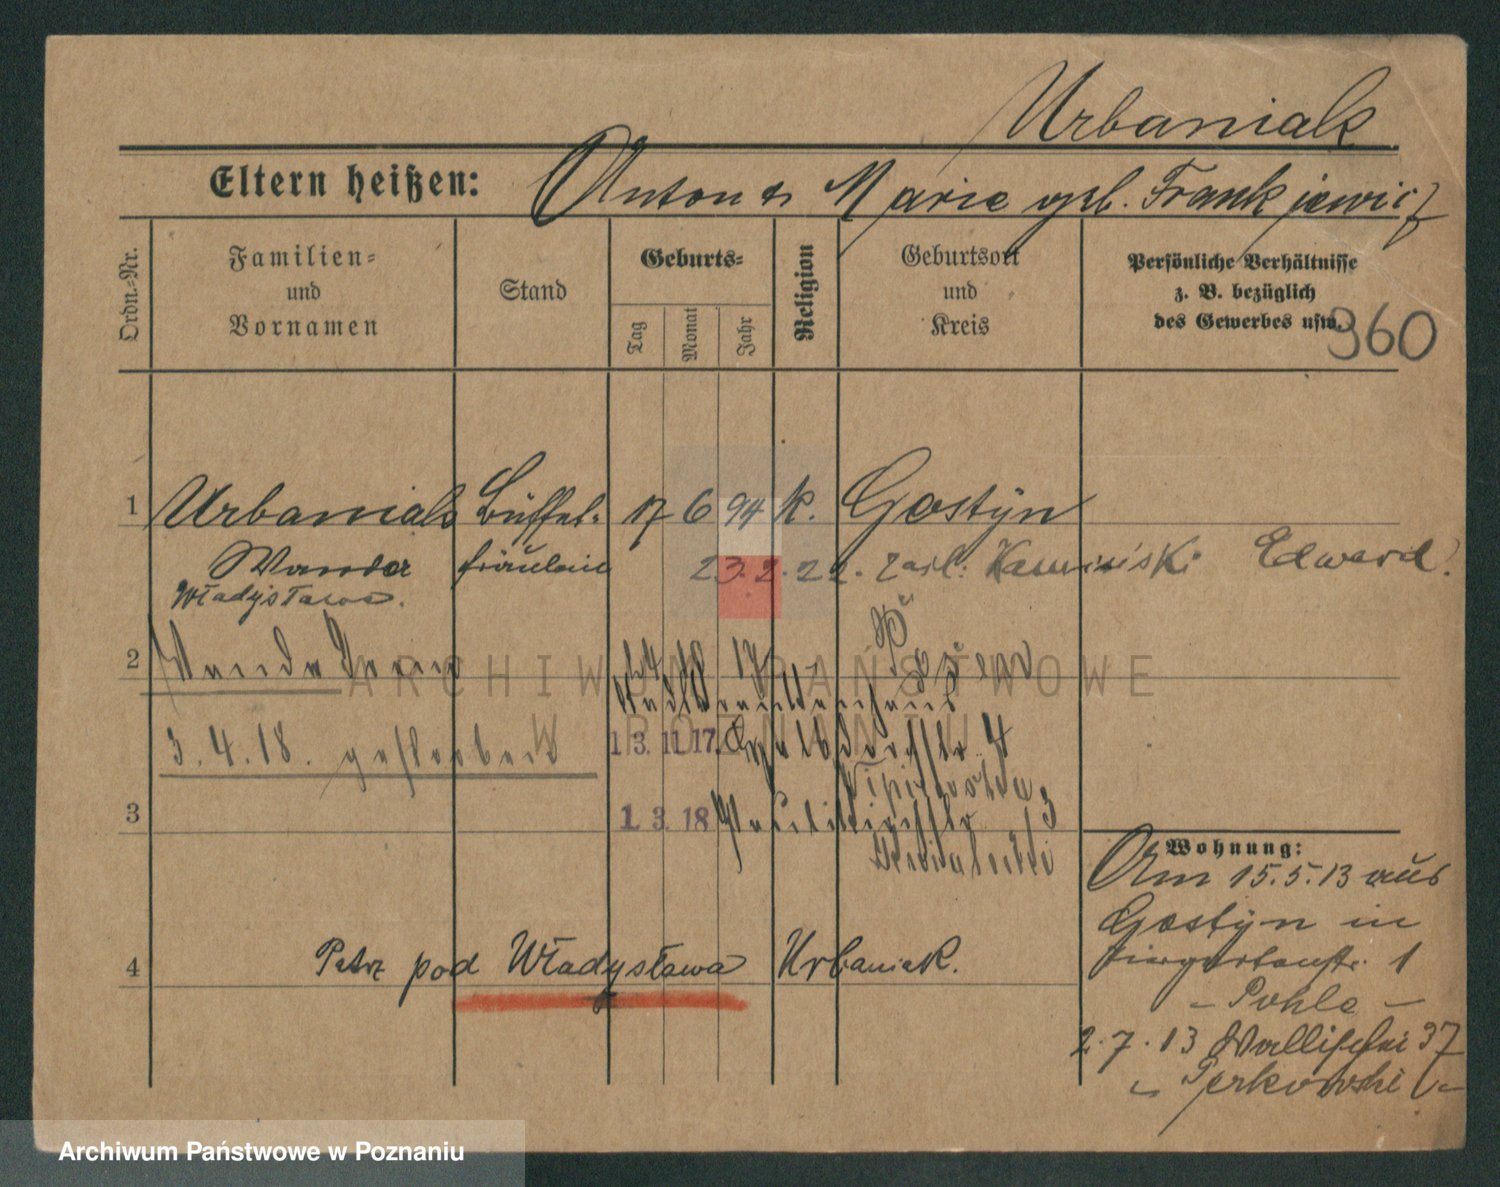 Urbaniak
Eltern heißen: Anton & Marie geb. Frankiewicz
Ordn.-Nr.
Familien-
und
Vornamen
Stand
Geburts-
Tag
Monat
Jahr
Religion
Geburtsort
und
Kreis
Persönliche Verhältnisse
z. B. bezüglich
des Gewerbes usw.
360
1 Urbaniak Büffet- 17 6 94 k. Gostyn
Wanda fräulein 23.2.22. zaśl. Kamiński Edward
Władysława.
2 Wanda 17
Posen
ARCHIWUM PAŃSTWOWE
W POZNANIU
3.4.18. gestorben 13.11.17. 4
3 1.3.18 3
4 Patrz pod Władysława Urbaniak.
Wohnung:
Am 15.5.13 aus
Gostyn in
1
- Pohle -
2.7.13 Wallischei 37
- Perkowski -
Archiwum Państwowe w Poznaniu